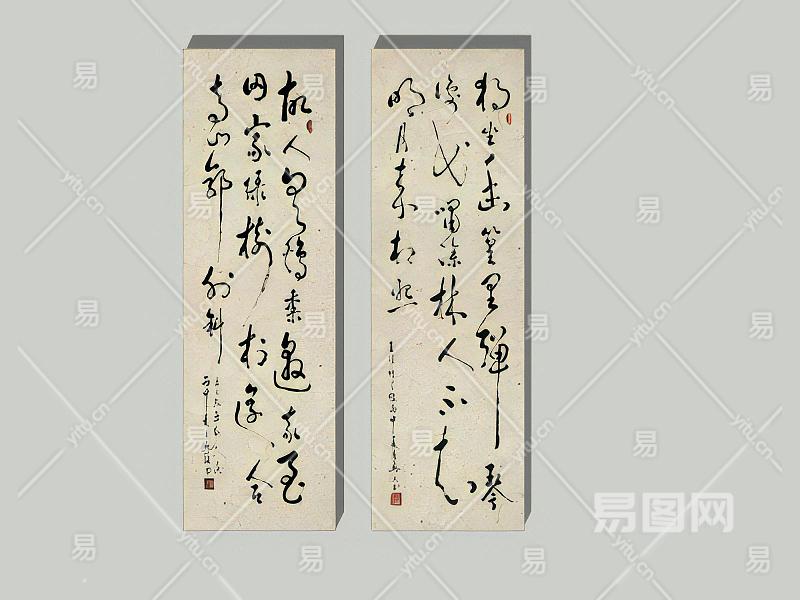 独坐幽篁里弹琴
復长嘯深林人不知
明月来相照
故人具鷄黍邀我至
田家绿樹村邊合
青山郭外斜
易图网
易
yitu.cn